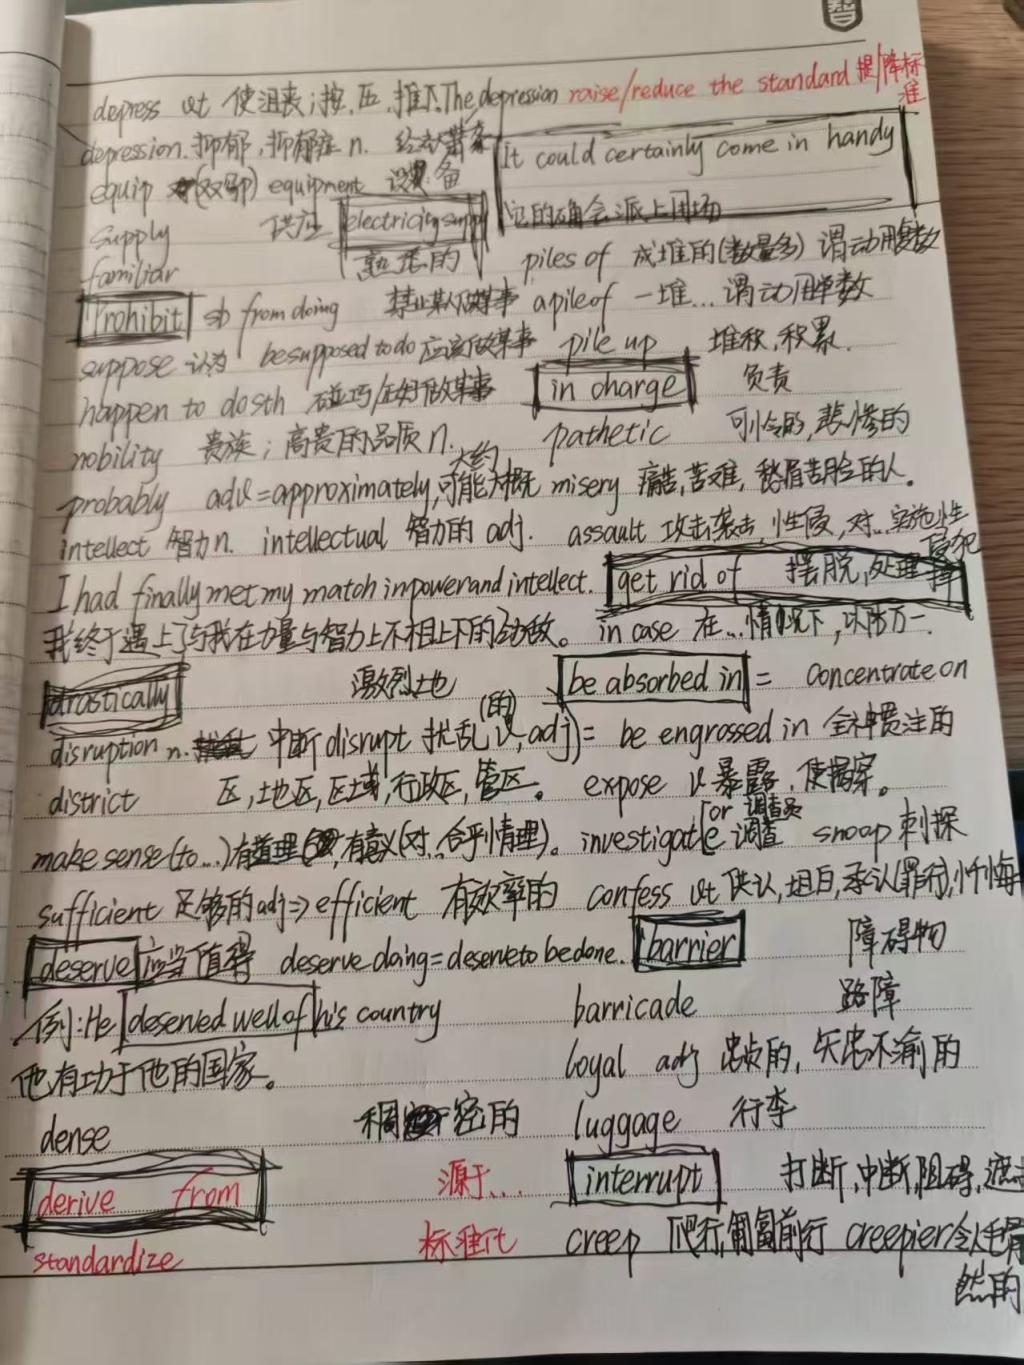 智
depress vt 使沮丧;按,压,推下.The depression raise/reduce the standard 提/降标准
depression.抑郁,抑郁症 n. 经济萧条 It could certainly come in handy
equip (双写p) equipment 设备
supply 供应 electricity supply 它的确会派上用场
familiar 熟悉的 piles of 成堆的(数量多) 谓动用复数
Prohibit sb from doing 禁止某人做某事 a pile of 一堆...谓动用单数
suppose 认为 be supposed to do 应该做某事 pile up 堆积,积累.
happen to do sth 碰巧/正好做某事 in charge 负责
nobility 贵族;高贵的品质 n. pathetic 可怜的,悲惨的
probably adv=approximately,可能大概 大约 misery 痛苦,苦难,愁眉苦脸的人。
intellect 智力n. intellectual 智力的 adj. assault 攻击袭击,性侵,对..实施性侵犯
I had finally met my match in power and intellect. get rid of 摆脱,处理
我终于遇上了与我在力量与智力上不相上下的劲敌。 in case 在...情况下,以防万一.
drastically 激烈地 be absorbed in = concentrate on
disruption n. 中断 disrupt 扰乱(的)(v,adj) = be engrossed in 全神贯注的
district 区,地区,区域,行政区,管区。 expose vt 暴露,使揭穿。
make sense (to...)有道理,有意义(对..合乎情理)。 investigate[or 调查员 调查 snoop 刺探
sufficient 足够的adj⇒efficient 有效率的 confess vt 供认,坦白,承认(罪行),忏悔
deserve 应当值得 deserve doing=deserve to be done. barrier 障碍物
例:He deserved well of his country barricade 路障
他有功于他的国家。 loyal adj 忠贞的,矢忠不渝的
dense 稠密的 luggage 行李
derive from 源于... interrupt 打断,中断,阻碍,遮
standardize 标准化 creep 爬行,匍匐前行 creepier令人毛骨
然的